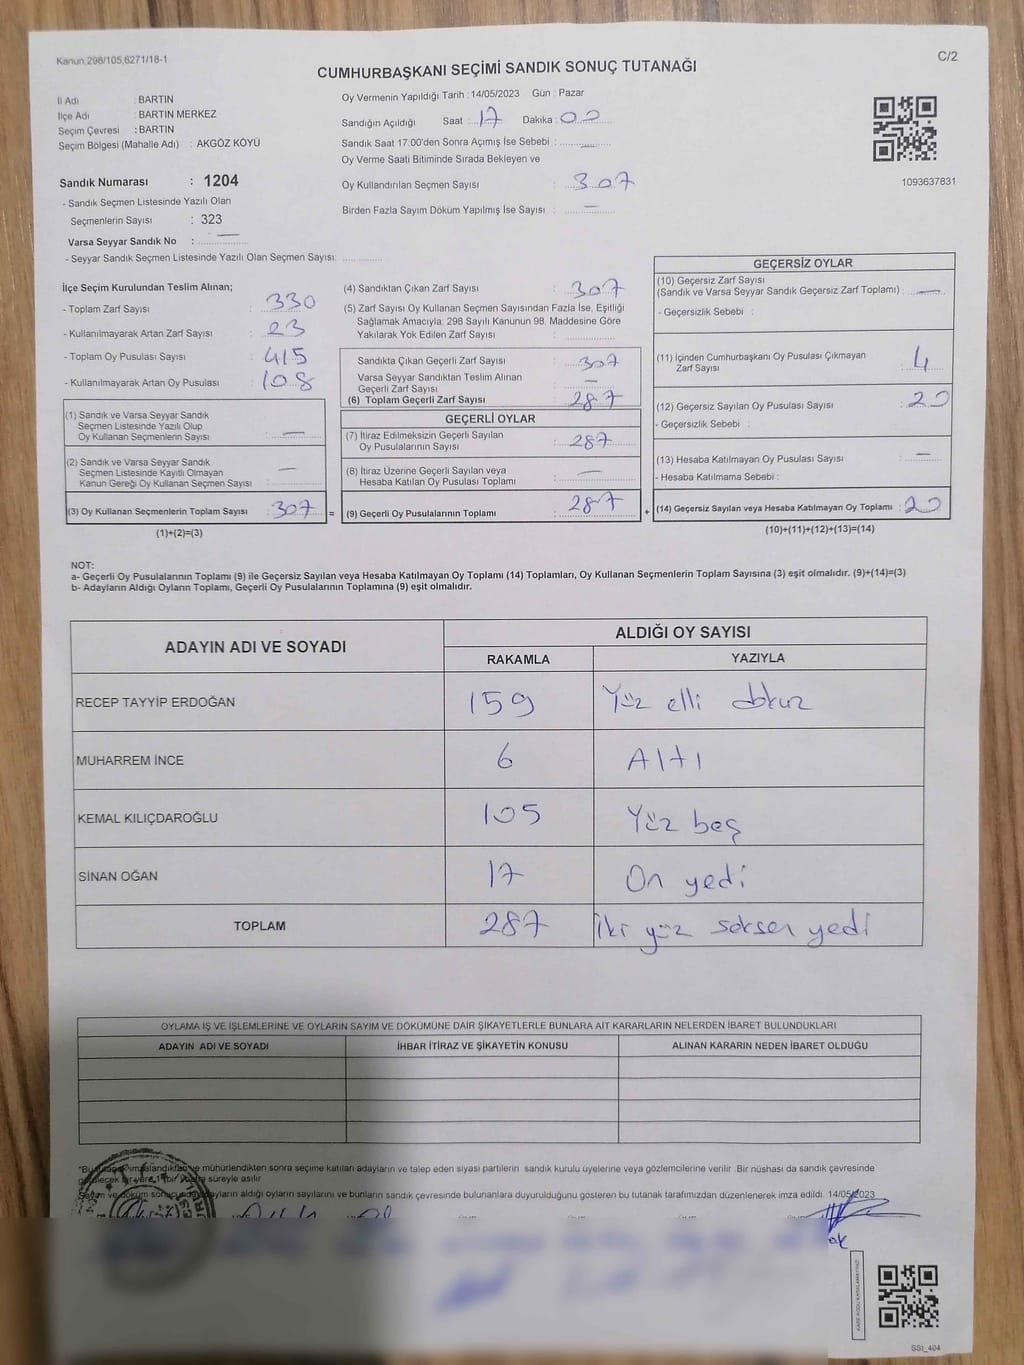 Kanun 298/105,6271/18-1
C/2
CUMHURBAŞKANI SEÇİMİ SANDIK SONUÇ TUTANAĞI
İl Adı : BARTIN
İlçe Adı : BARTIN MERKEZ
Seçim Çevresi : BARTIN
Seçim Bölgesi (Mahalle Adı) : AKGÖZ KÖYÜ
Sandık Numarası : 1204
- Sandık Seçmen Listesinde Yazılı Olan
Seçmenlerin Sayısı : 323
Varsa Seyyar Sandık No : —
- Seyyar Sandık Seçmen Listesinde Yazılı Olan Seçmen Sayısı:
Oy Vermenin Yapıldığı Tarih : 14/05/2023 Gün : Pazar
Sandığın Açıldığı Saat : 17 Dakika : 00
Sandık Saat 17.00'den Sonra Açımış İse Sebebi : —
Oy Verme Saati Bitiminde Sırada Bekleyen ve
Oy Kullandırılan Seçmen Sayısı : 307
Birden Fazla Sayım Döküm Yapılmış İse Sayısı : —
1093637831
İlçe Seçim Kurulundan Teslim Alınan;
- Toplam Zarf Sayısı : 330
- Kullanılmayarak Artan Zarf Sayısı : 23
- Toplam Oy Pusulası Sayısı : 415
- Kullanılmayarak Artan Oy Pusulası : 108
(1) Sandık ve Varsa Seyyar Sandık
Seçmen Listesinde Yazılı Olup
Oy Kullanan Seçmenlerin Sayısı : —
(2) Sandık ve Varsa Seyyar Sandık
Seçmen Listesinde Kayıtlı Olmayan
Kanun Gereği Oy Kullanan Seçmen Sayısı : —
(3) Oy Kullanan Seçmenlerin Toplam Sayısı : 307 =
(1)+(2)=(3)
(4) Sandıktan Çıkan Zarf Sayısı : 307
(5) Zarf Sayısı Oy Kullanan Seçmen Sayısından Fazla İse, Eşitliği
Sağlamak Amacıyla; 298 Sayılı Kanunun 98. Maddesine Göre
Yakılarak Yok Edilen Zarf Sayısı :
Sandıkta Çıkan Geçerli Zarf Sayısı : 307
Varsa Seyyar Sandıktan Teslim Alınan
Geçerli Zarf Sayısı : —
(6) Toplam Geçerli Zarf Sayısı : 287
GEÇERLİ OYLAR
(7) İtiraz Edilmeksizin Geçerli Sayılan
Oy Pusulalarının Sayısı : 287
(8) İtiraz Üzerine Geçerli Sayılan veya
Hesaba Katılan Oy Pusulası Toplamı : —
(9) Geçerli Oy Pusulalarının Toplamı : 287 +
GEÇERSİZ OYLAR
(10) Geçersiz Zarf Sayısı
(Sandık ve Varsa Seyyar Sandık Geçersiz Zarf Toplamı) : —
- Geçersizlik Sebebi :
(11) İçinden Cumhurbaşkanı Oy Pusulası Çıkmayan
Zarf Sayısı : 4
(12) Geçersiz Sayılan Oy Pusulası Sayısı : 20
- Geçersizlik Sebebi :
(13) Hesaba Katılmayan Oy Pusulası Sayısı : —
- Hesaba Katılmama Sebebi :
(14) Geçersiz Sayılan veya Hesaba Katılmayan Oy Toplamı : 20
(10)+(11)+(12)+(13)=(14)
NOT:
a- Geçerli Oy Pusulalarının Toplamı (9) ile Geçersiz Sayılan veya Hesaba Katılmayan Oy Toplamı (14) Toplamları, Oy Kullanan Seçmenlerin Toplam Sayısına (3) eşit olmalıdır. (9)+(14)=(3)
b- Adayların Aldığı Oyların Toplamı, Geçerli Oy Pusulalarının Toplamına (9) eşit olmalıdır.
ADAYIN ADI VE SOYADI ALDIĞI OY SAYISI
RAKAMLA YAZIYLA
RECEP TAYYİP ERDOĞAN 159 Yüz elli dokuz
MUHARREM İNCE 6 Altı
KEMAL KILIÇDAROĞLU 105 Yüz beş
SİNAN OĞAN 17 On yedi
TOPLAM 287 iki yüz seksen yedi
OYLAMA İŞ VE İŞLEMLERİNE VE OYLARIN SAYIM VE DÖKÜMÜNE DAİR ŞİKAYETLERLE BUNLARA AİT KARARLARIN NELERDEN İBARET BULUNDUKLARI
ADAYIN ADI VE SOYADI İHBAR İTİRAZ VE ŞİKAYETİN KONUSU ALINAN KARARIN NEDEN İBARET OLDUĞU
mühürlendikten sonra seçime katılan adayların ve talep eden siyasi partilerin sandık kurulu üyelerine veya gözlemcilerine verilir. Bir nüshası da sandık çevresinde
süreyle asılır
aldığı oyların sayılarını ve bunların sandık çevresinde bulunanlara duyurulduğunu gösteren bu tutanak tarafımızdan düzenlenerek imza edildi. 14/05/2023
SSI_404